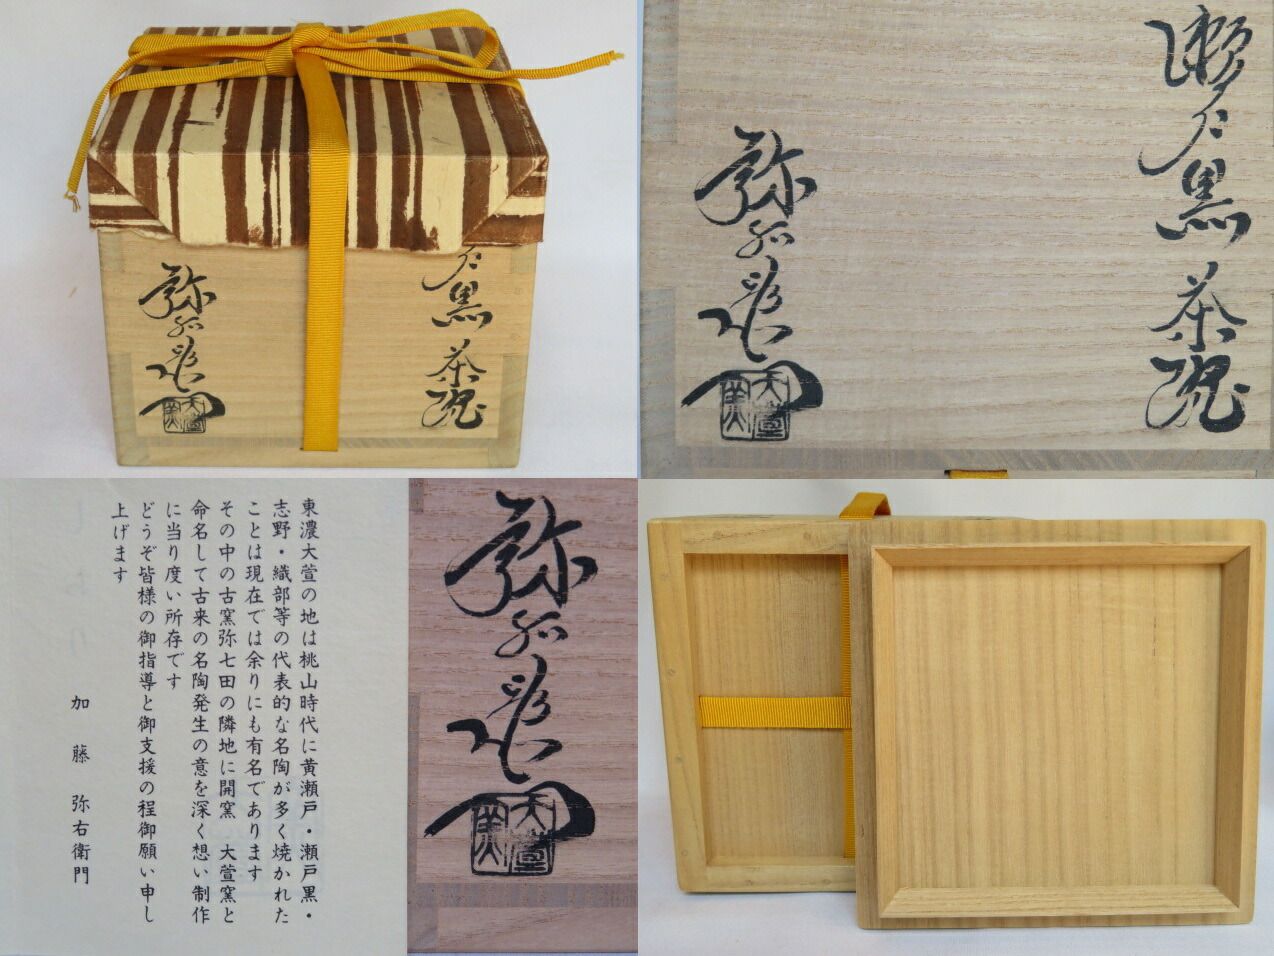 黒
茶碗
弥右衛門
瀬戸黒
茶碗
弥右衛門
大萱窯
東濃大萱の地は桃山時代に黄瀬戸・瀬戸黒・
志野・織部等の代表的な名陶が多く焼かれた
ことは現在では余りにも有名であります
その中の古窯弥七田の隣地に開窯 大萱窯と
命名して古来の名陶発生の意を深く想い制作
に当り度い所存です
どうぞ皆様の御指導と御支援の程御願い申し
上げます
加藤弥右衛門
弥右衛門
大萱窯